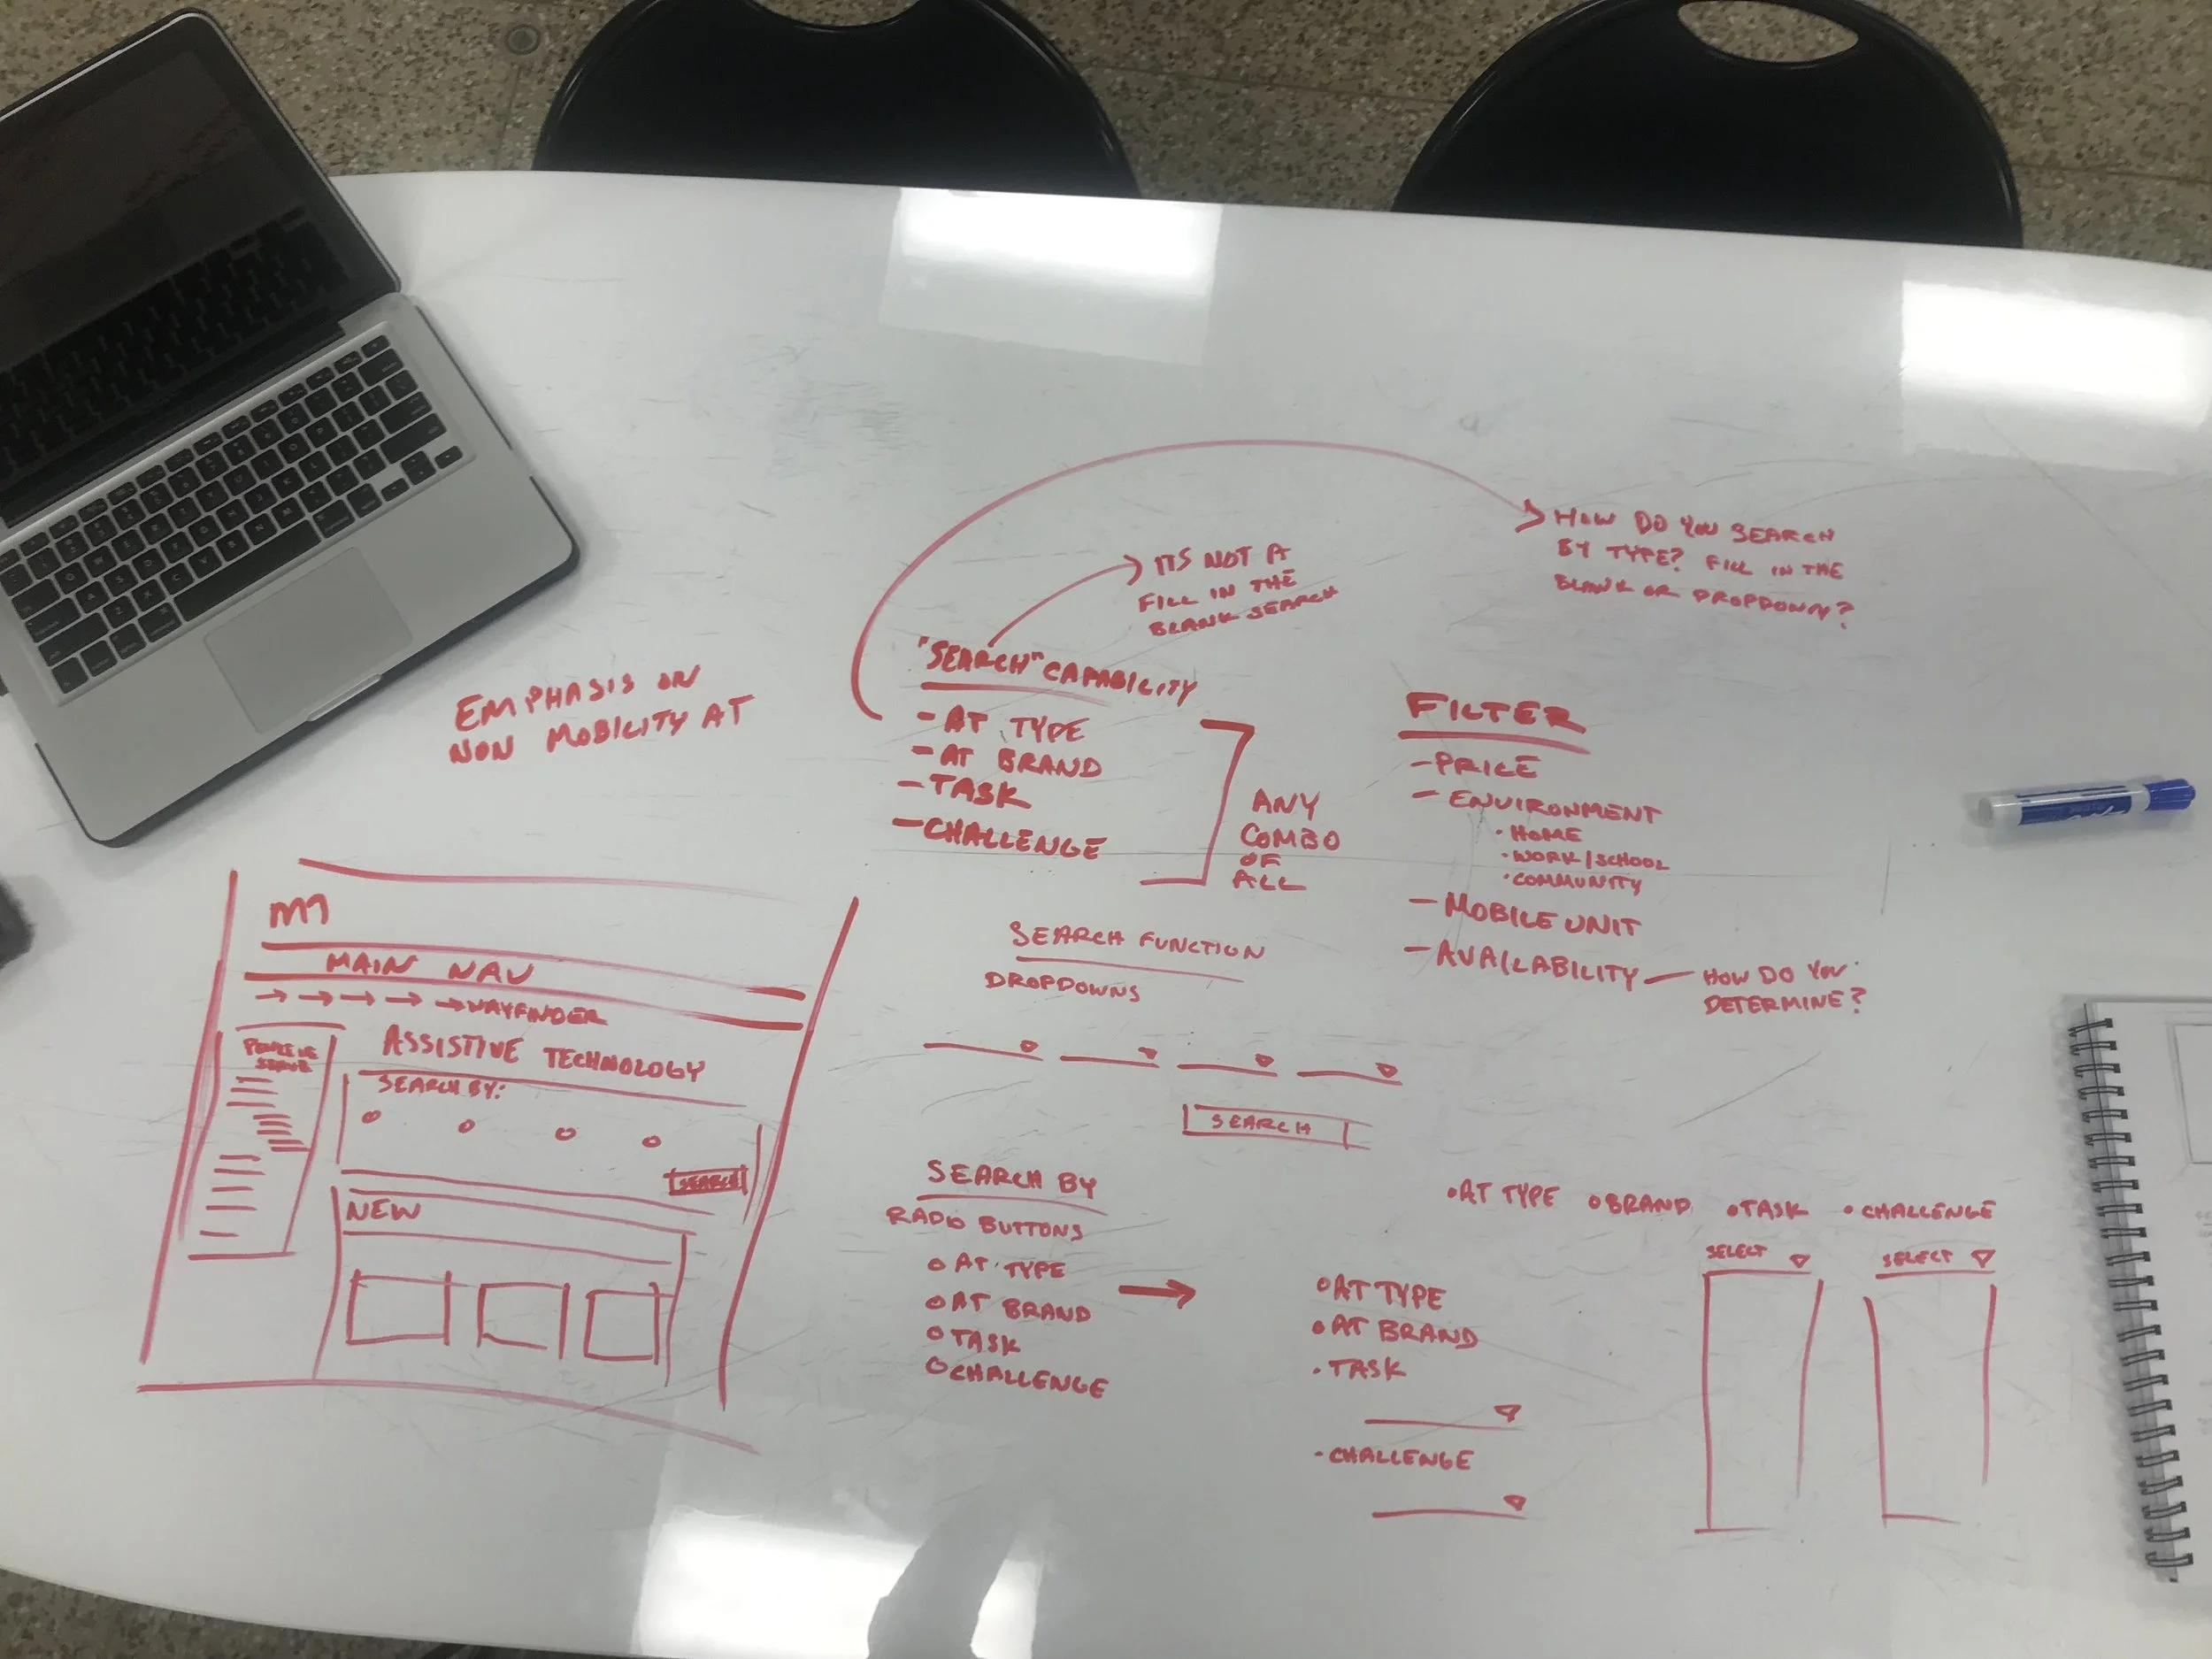 EMPHASIS ON
NON MOBILITY AT
HOW DO YOU SEARCH
BY TYPE? FILL IN THE
BLANK OR DROPDOWN?
ITS NOT A
FILL IN THE
BLANK SEARCH
"SEARCH" CAPABILITY
- AT TYPE
- AT BRAND
- TASK
- CHALLENGE
ANY
COMBO
OF
ALL
FILTER
- PRICE
- ENVIRONMENT
• HOME
• WORK/SCHOOL
• COMMUNITY
- MOBILE UNIT
- AVAILABILITY — HOW DO YOU
DETERMINE?
MAIN NAV
WAYFINDER
PEOPLE WE
SERVE
ASSISTIVE TECHNOLOGY
SEARCH BY:
SEARCH
NEW
SEARCH FUNCTION
DROPDOWNS
SEARCH
SEARCH BY
RADIO BUTTONS
○ AT TYPE
○ AT BRAND
○ TASK
○ CHALLENGE
○ AT TYPE
• AT BRAND
• TASK
- CHALLENGE
• AT TYPE ○ BRAND ○ TASK • CHALLENGE
SELECT SELECT